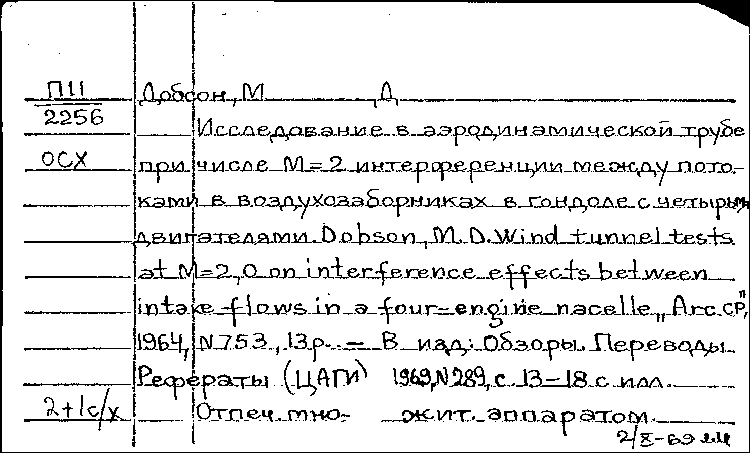 П11 Добсон, М Д
2256 Исследование в аэродинамической трубе
ОСХ при числе М=2 интерференции между пото-
ками в воздухозаборниках в гондоле с четырьмя
двигателями. Dobson, M.D. Wind tunnel tests
at M=2,0 on interference effects between
intake flows in a four-engine nacelle „Arc CP,"
1964, N753, 13p. — В изд: Обзоры. Переводы
Рефераты (ЦАГИ) 1969, N289, с. 13-18 с илл.
2+1с/х Отпеч. мно- жит. аппаратом.
2/X-69